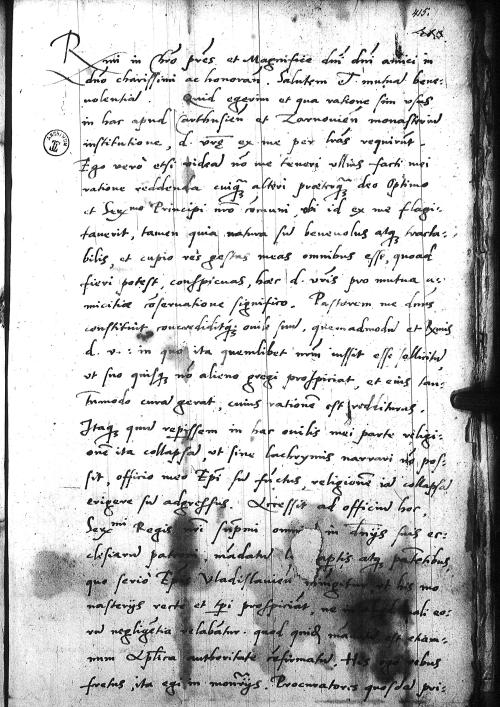 415.
Rmi in Chro pres et Magnifice dni dni amici in
dno charissimi ac honoran. Salutem et mutua bene-
volentia. Quid egerim et qua ratione sim usus
in hac apud Carthusien et Zarnovien monasteria
institutione, d. vrs ex me per lras requirunt.
Ego vero etsi videa no me teneri ullius facti mei
ratione reddenda cuiq alteri praeterq deo Optimo
et Sexmo Principi nro comuni ubi id ex me flagi-
taverit, tamen quia natura su benevolus atq tracta-
bilis, et cupio res gestas meas omnibus esse, quoad
fieri potest, conspicuas, haec d. vris pro mutua a-
micitia coservatione significo. Pastorem me dnus
constituit concreditq oves suas, quemadmodu et Rmis
d. v.: in quo ita quemlibet nrm iussit esse sollicitu
ut suo quisq no alieno gregi prospiciat, et eius tan-
tumodo cura gerat, cuius ratione est redditurus.
Itaq quu reperissem in hac ovilis mei parte religi-
one ita collapsa, ut sine lachrymis narrari no pos-
sit, officio meo Epi su functus, religione ia collapsa
erigere su adgressus. Accessit ad officiu hoc,
Sexmi Regis nri supmi omniu in dnijs suis ec-
clesiaru patroni, madatu atq patetibus,
quo serio Epus Vladislavien iniugitur ut his mo-
nasterijs recte et tpi prospiciat, ne
ru negligetia relabatur. quod quide madatu est etiam-
num Aplica authoritate cofirmatu. His ergo rebus
fretus, ita egi in monrijs. Procuratoris quosda pri-